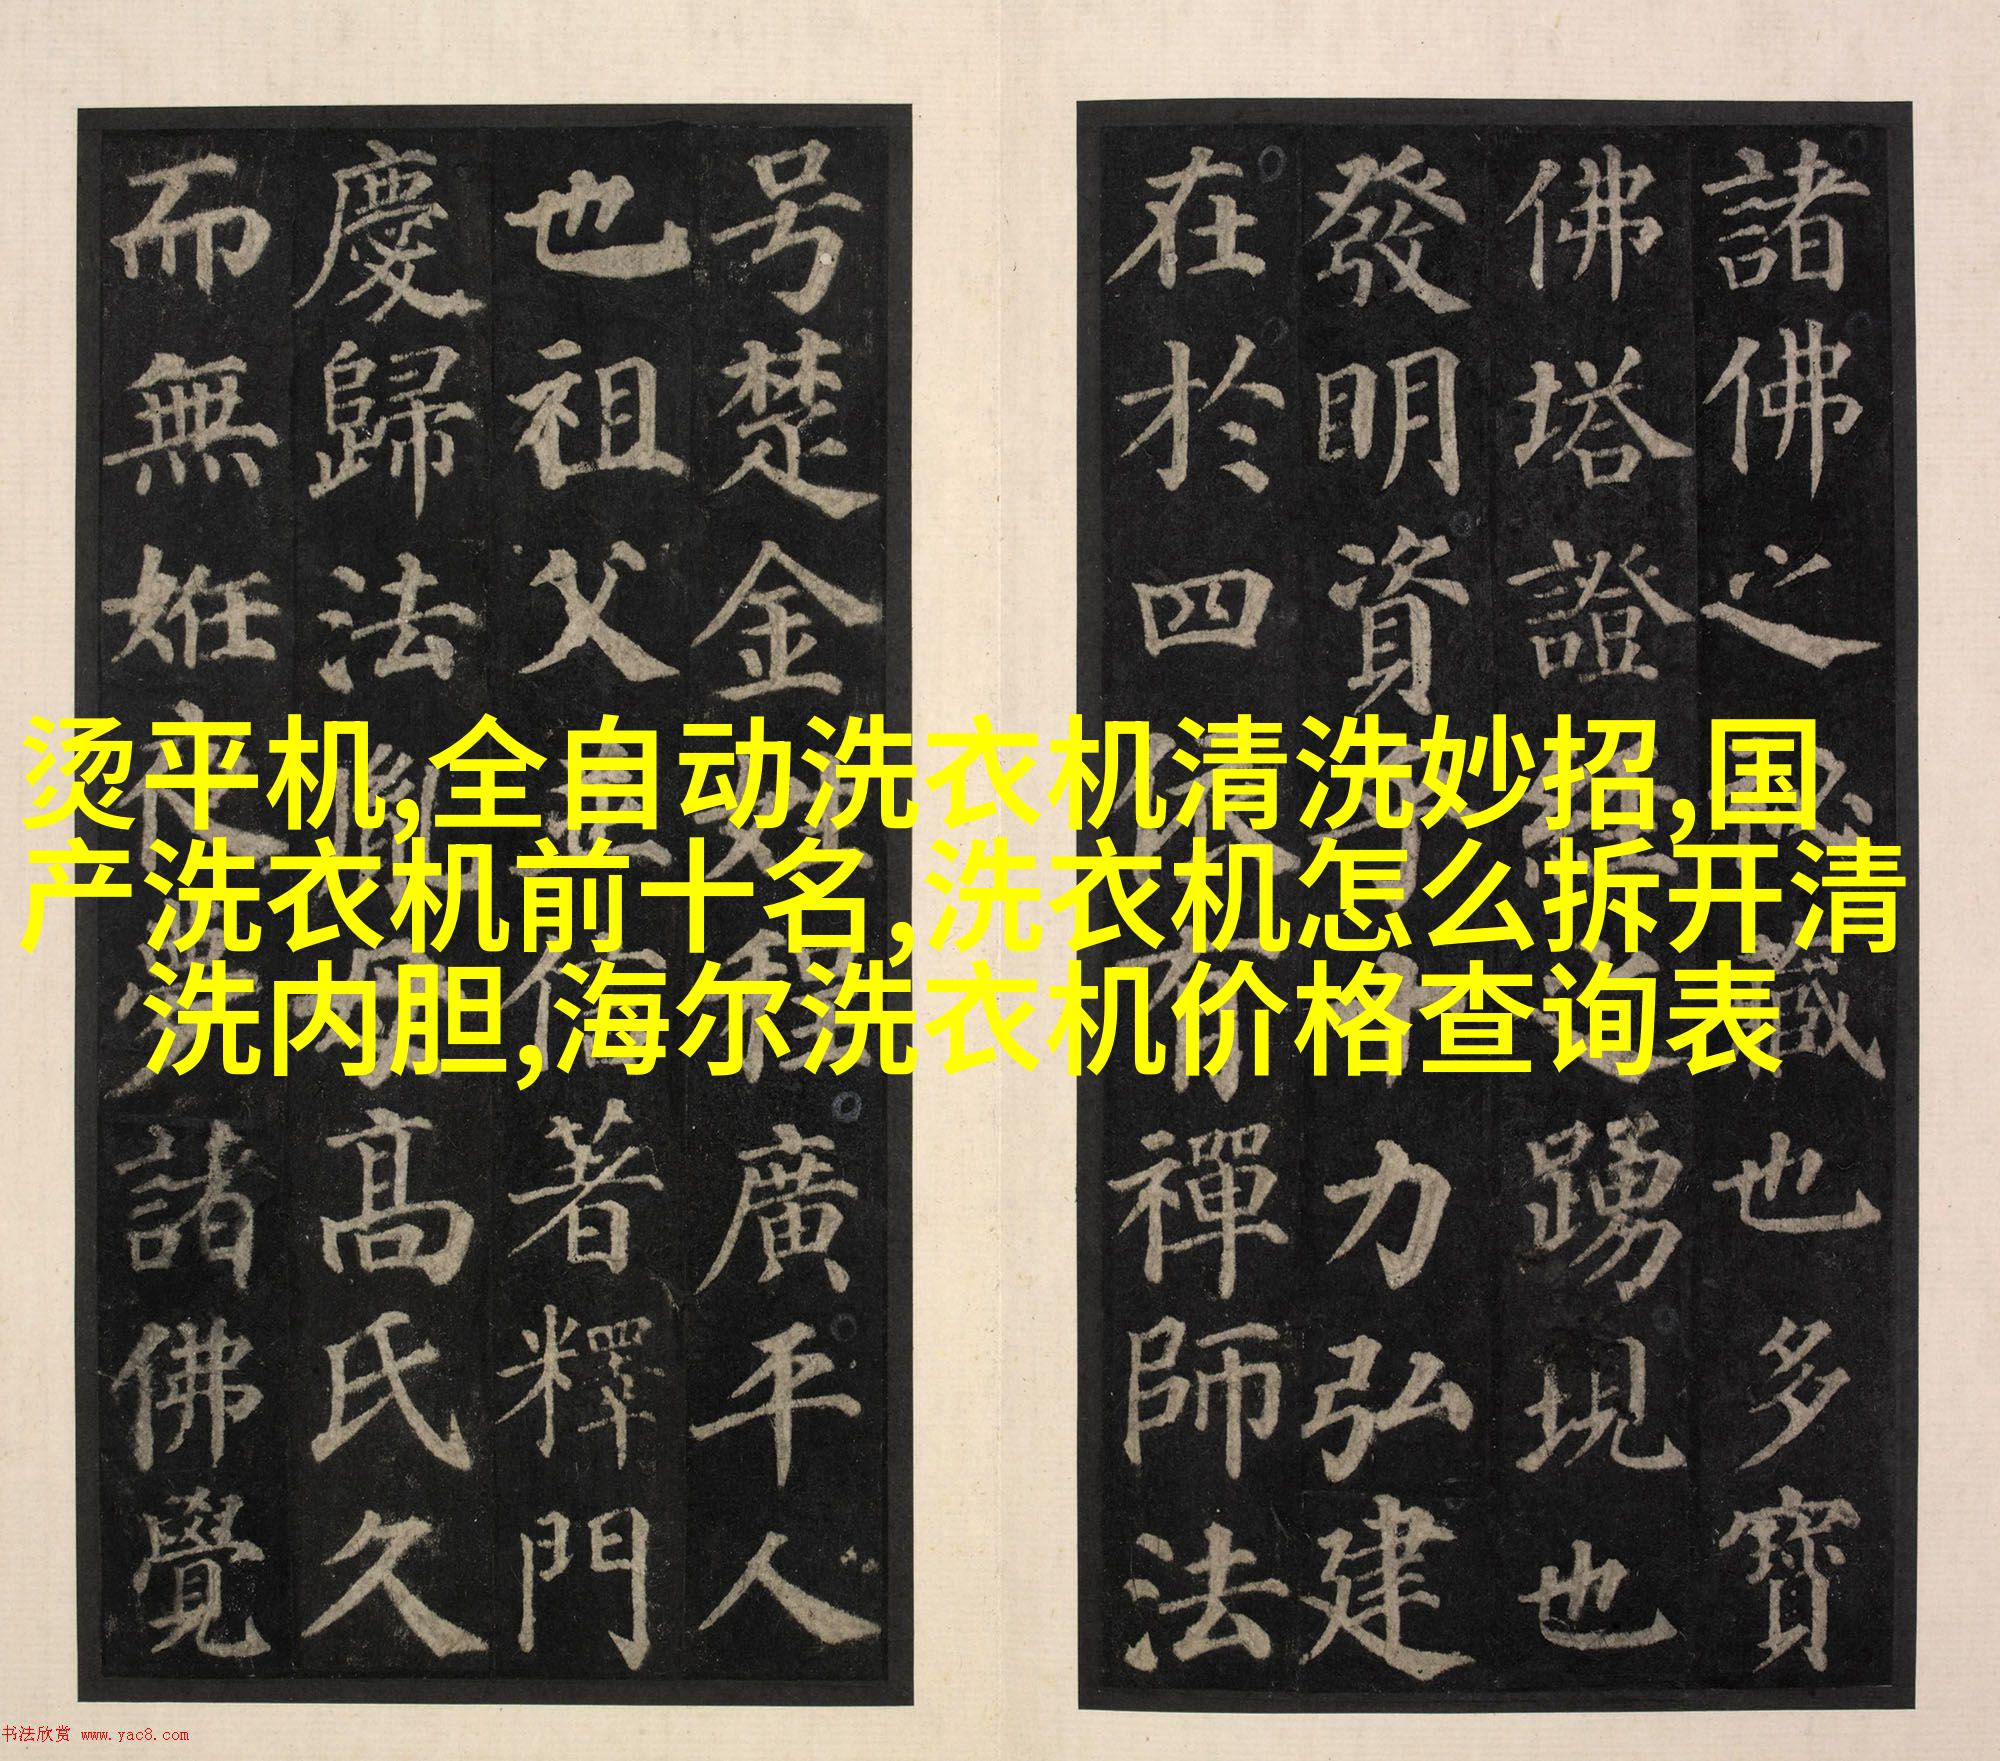 諸佛之秘藏也多寶
佛塔證經之踴現也
發明資乎十力弘建
在於四依有禪師法
号楚金姓程廣平人
也祖父並信著釋門
慶歸法胤母高氏久
而無姙夜夢諸佛覺
烫平机,全自动洗衣机清洗妙招,国
产洗衣机前十名,洗衣机怎么拆开清
洗内胆,海尔洗衣机价格查询表
书法欣赏 www.yac8.com